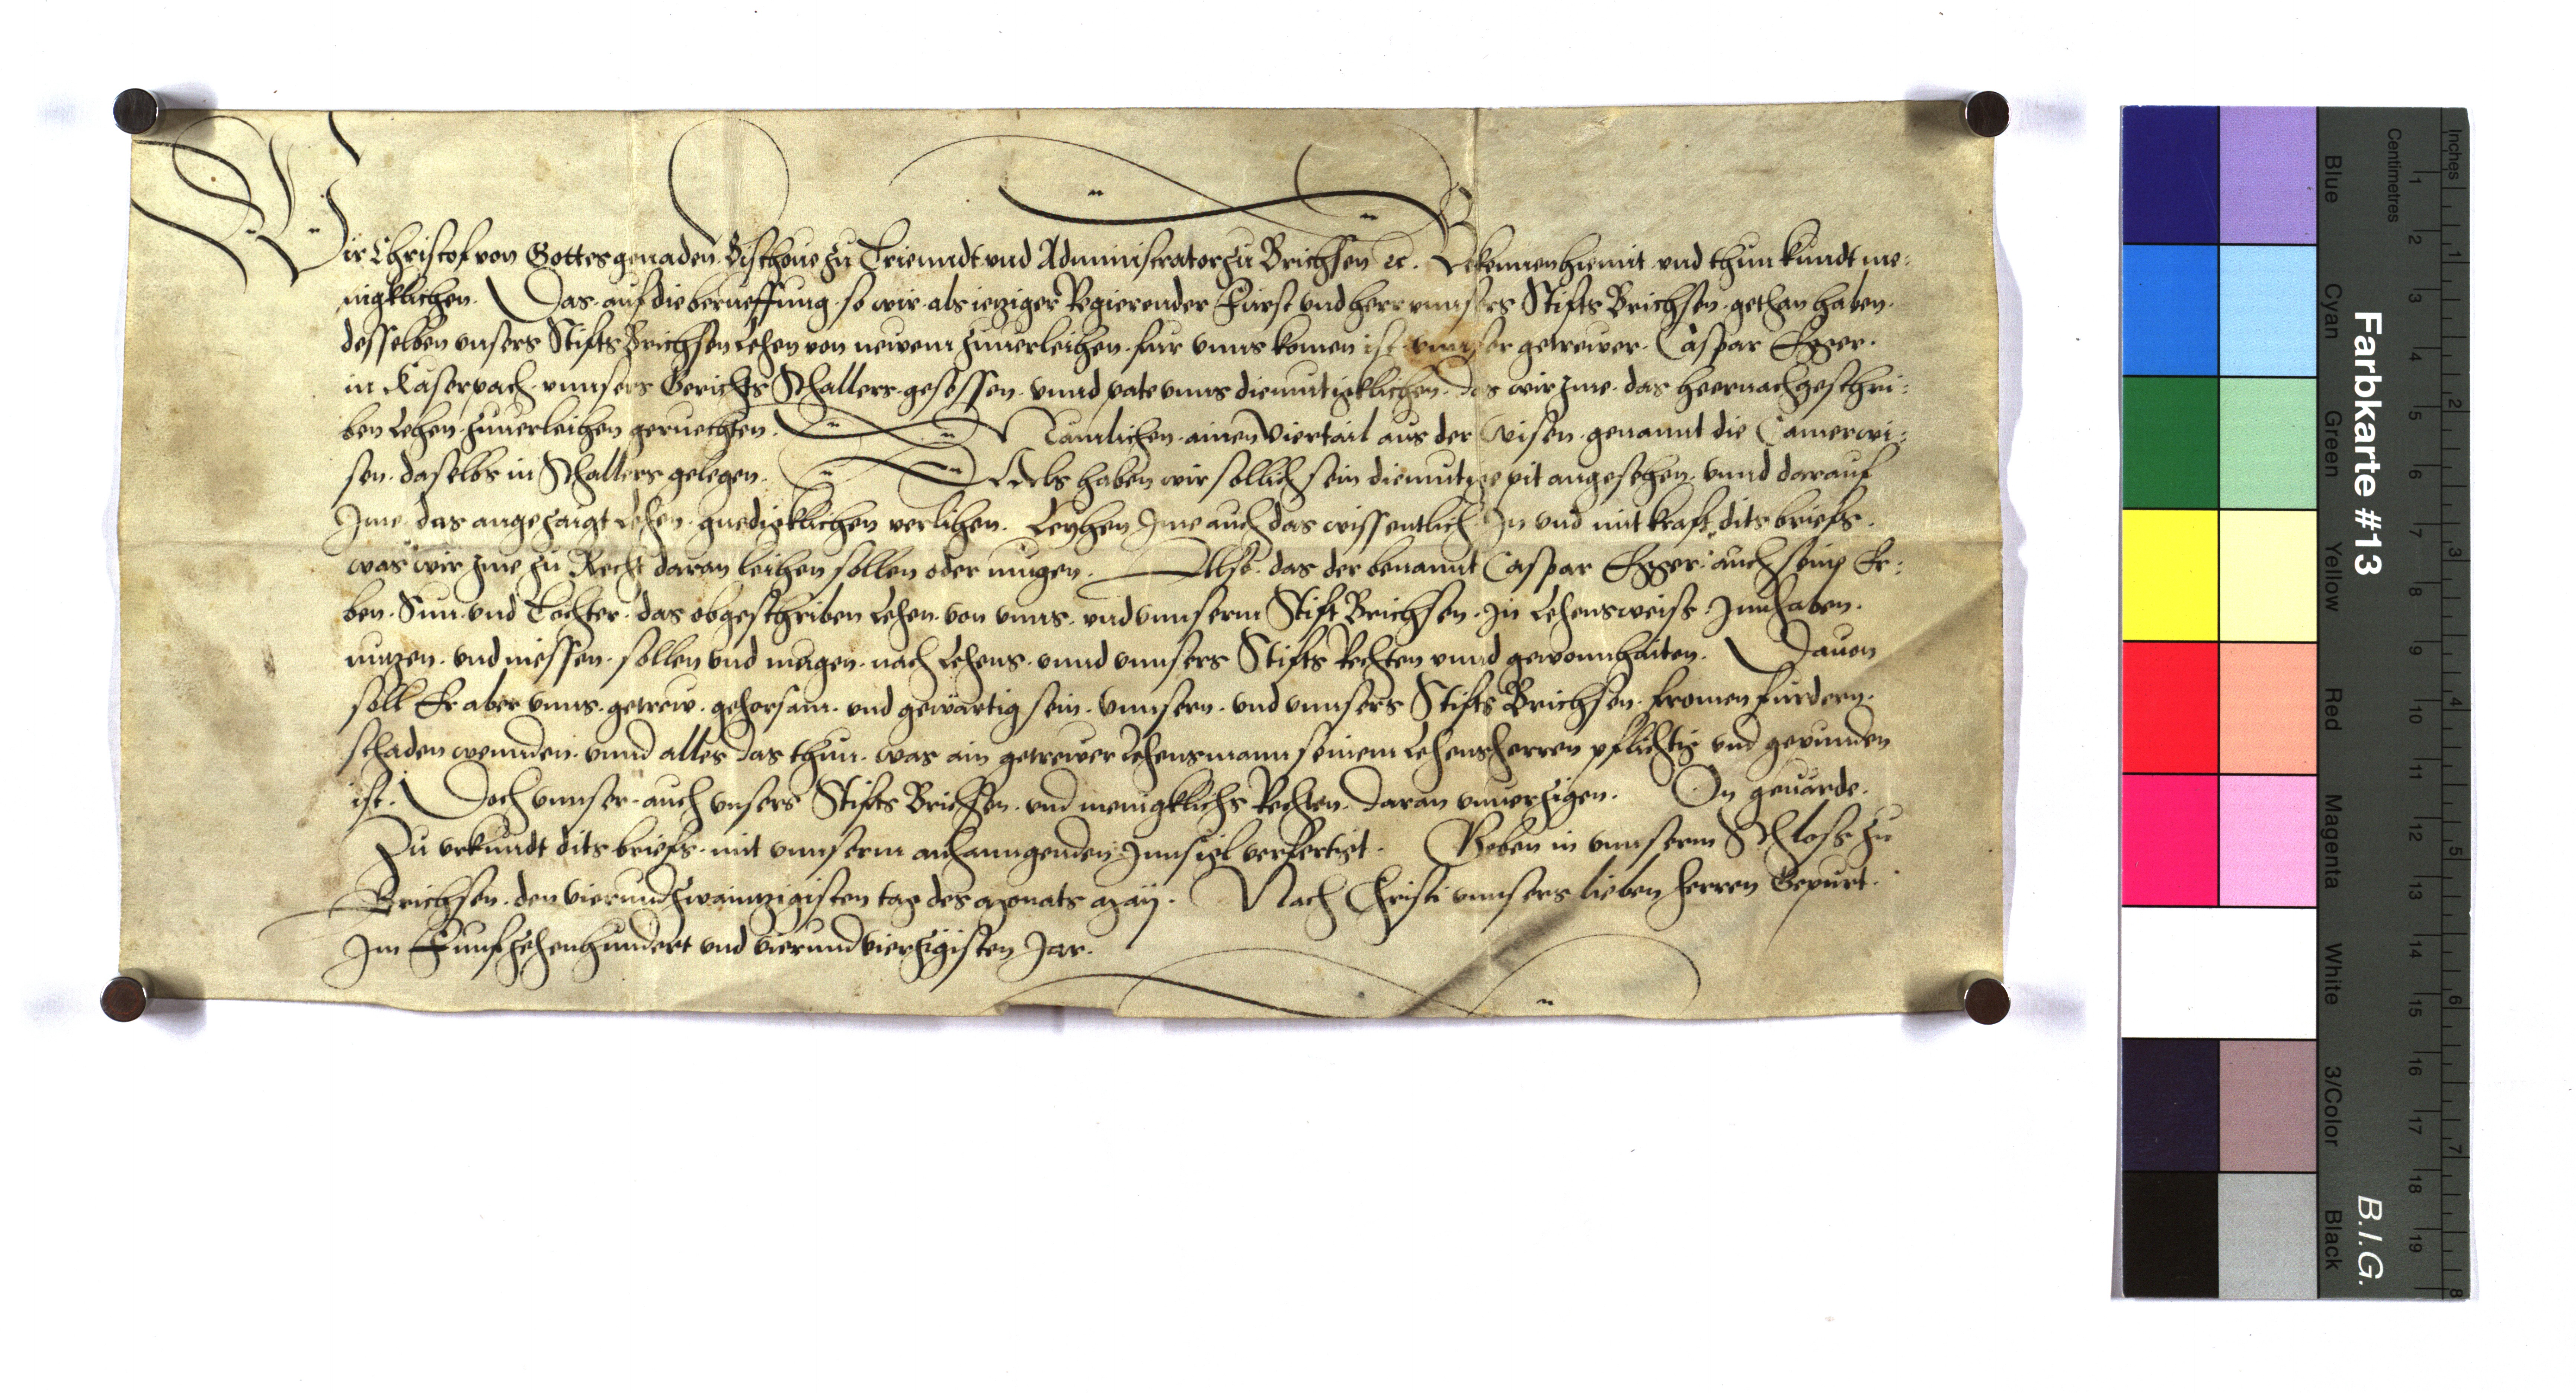 Wir Christof von Gottes genaden Bischoue zu Triendt vnd Administrator zu Brichsen ec. Bekennen hiemit vnd thun kundt me-
nigklichen. Das auf die berueffung so wir als ietziger Regierender Fürst vnd herr vnnsers Stifts Brichsen gethan haben.
desselben vnsers Stifts Brichsen Lehen von newem zuuerleihen fur vnns komen ist vnnser getrewer Caspar Egger.
in Kaserpach vnnsers Gerichts Schallers gesessen vnnd pate vnns diemutigklichen das wir Jme das heernachgeschri-
ben Lehen zuuerleihen geruechten. Namlichen ainen Viertail aus der Wisen genannt die Camerwi-
sen daselbs in Schallers gelegen. Als haben wir sollich sein diemutige pit angesehen vnnd darauf
Jme das angezaigt Lehen gnedigklichen verlihen. Leyhen Jme auch das wissentlich Jn vnd mit kraft dits briefs.
was wir Jme zu Recht daran leihen sollen oder mugen. Also das der benannt Caspar Egger auch seine Er-
ben Sun vnd Tochter das obgeschriben Lehen von vnns vnd vnnserm Stift Brichsen Jn Lehensweiss Jnnhaben.
nutzen vnd niessen sollen vnd mugen nach Lehens vnnd vnnsers Stifts Rechten vnnd gewonnhaiten. Dauon
soll Er aber vnns getrew gehorsam vnd gewärtig sein vnnsern vnd vnnsers Stifts Brichsen fromen furdern.
schaden wennden vnnd alles das thun was ain getrewer Lehensmann seinem Lehensherren pflichtig vnd gepunden
ist. Doch vnnser auch vnsers Stifts Brichsen vnd menigklichs Rechten daran vnuerzigen. On geuärde.
Zu vrkundt dits briefs mit vnnserm anhanngenden Jnnsigl verfertigt. Geben in vnnserm Schloss zu
Brichsen den vierundzwaintzigisten tag des Monats Maÿ. Nach Christi vnnsers lieben herren Gepurt.
Jm Funfzehenhundert vnd vierundvierzigisten Jar.
Farbkarte #13
B.I.G.
Inches 1 2 3 4 5 6 7 8
Centimetres 1 2 3 4 5 6 7 8 9 10 11 12 13 14 15 16 17 18 19
Blue Cyan Green Yellow Red Magenta White 3/Color Black